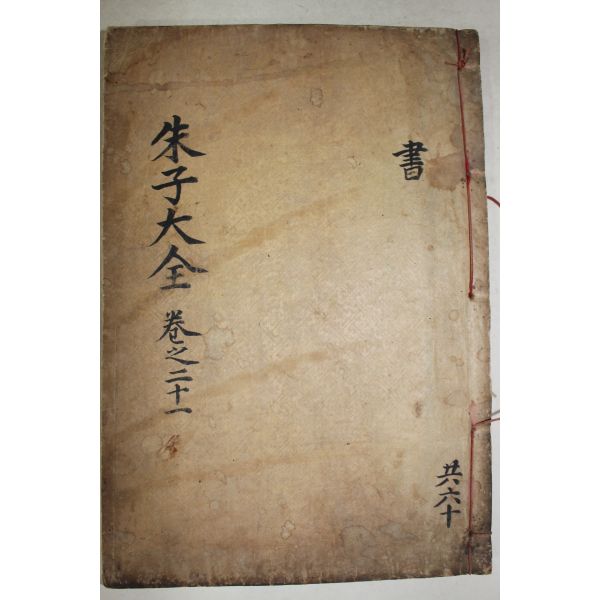 書
朱子大全 卷之二十一
共六十